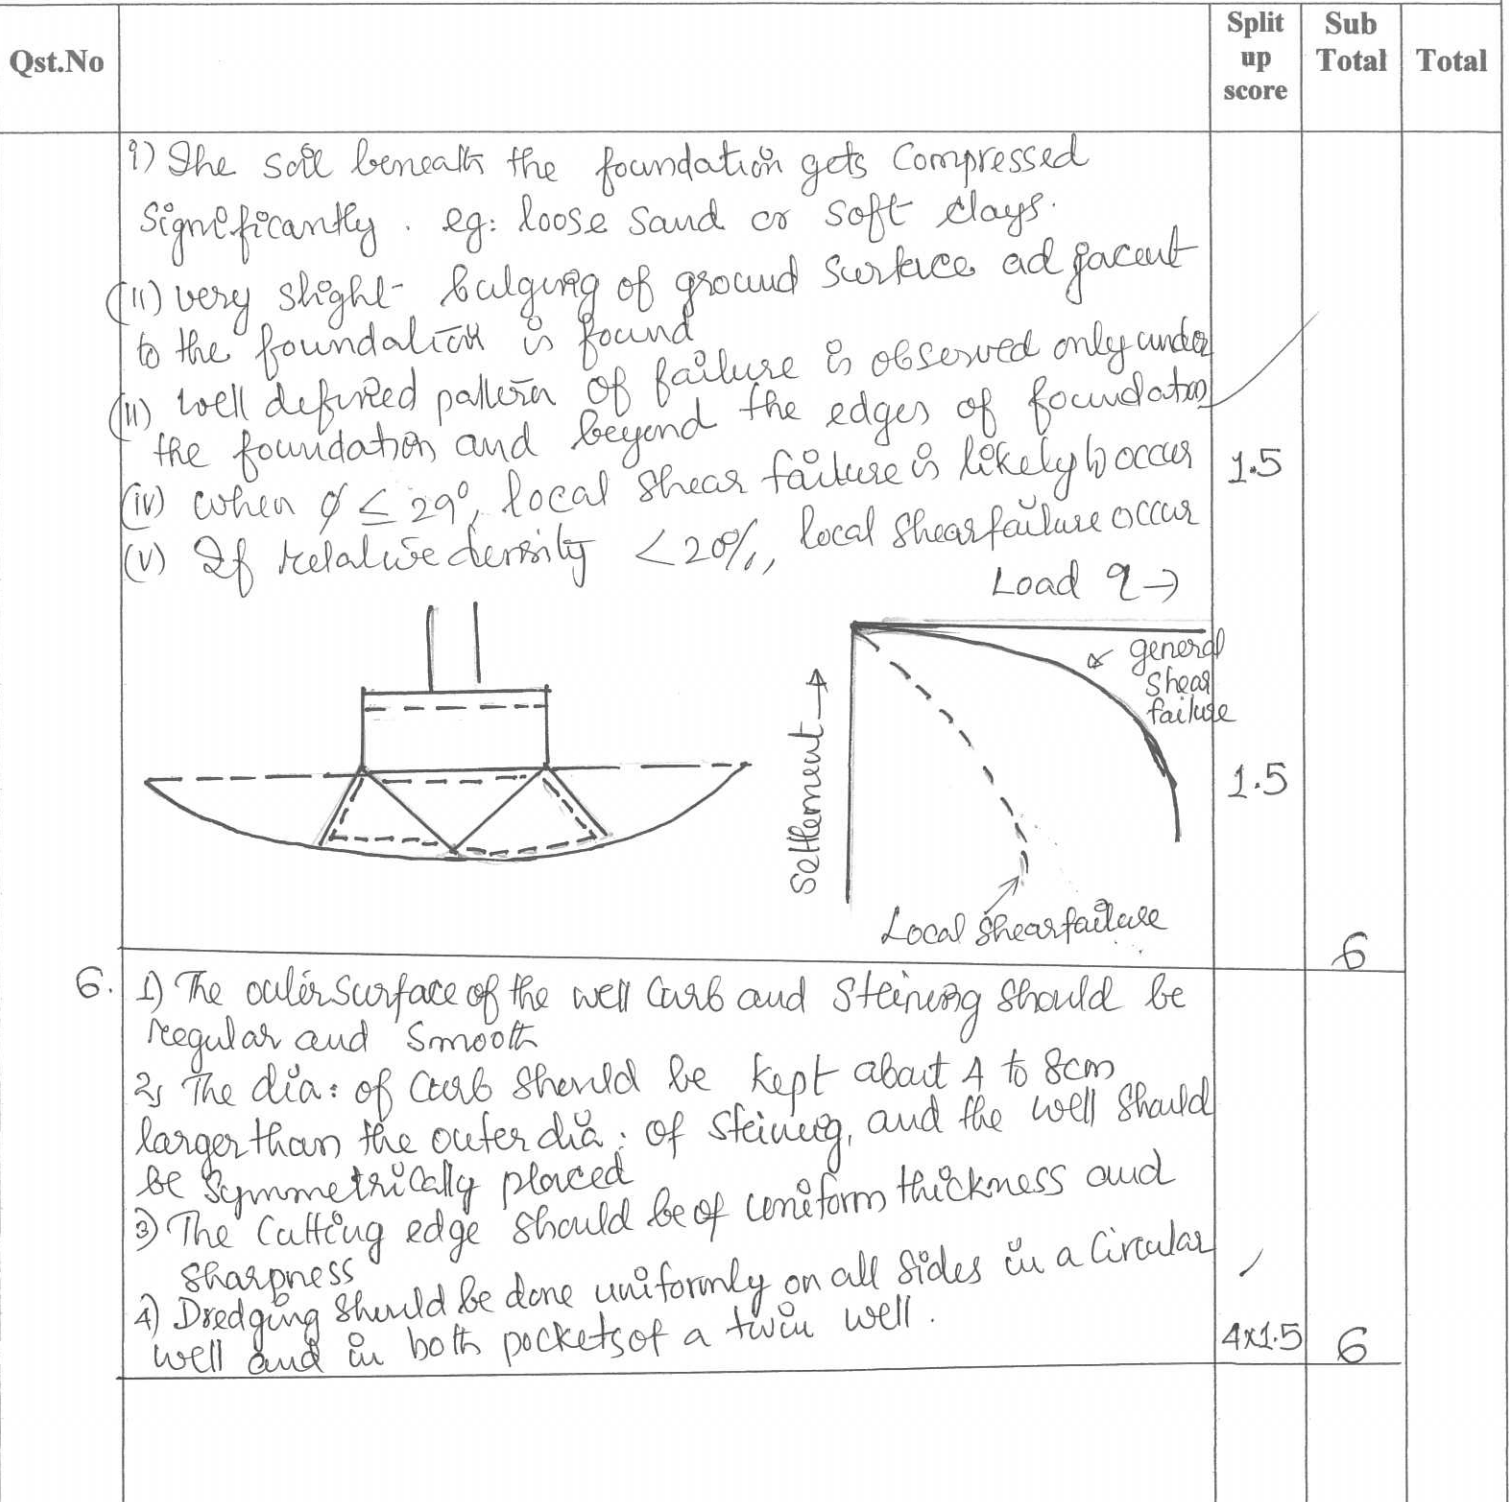 Qst.No
Split up score
Sub Total
Total
i) The soil beneath the foundation gets compressed
significantly. eg: loose sand or soft clays.
(ii) very slight bulging of ground surface adjacent
to the foundation is found
(iii) well defined pattern of failure is observed only under
the foundation and beyond the edges of foundation
1.5
(iv) when ϕ ≤ 29°, local shear failure is likely to occur
(v) If relative density <20%, local shear failure occur
Load q→
general
shear
failure
Settlement →
1.5
Local shear failure
6
6. 1) The outer surface of the well curb and steining should be
regular and smooth
2) The dia: of curb should be kept about 4 to 8cm
larger than the outer dia: of steining, and the well should
be symmetrically placed
3) The cutting edge should be of uniform thickness and
sharpness
4) Dredging should be done uniformly on all sides in a circular
well and in both pockets of a twin well.
4x1.5
6